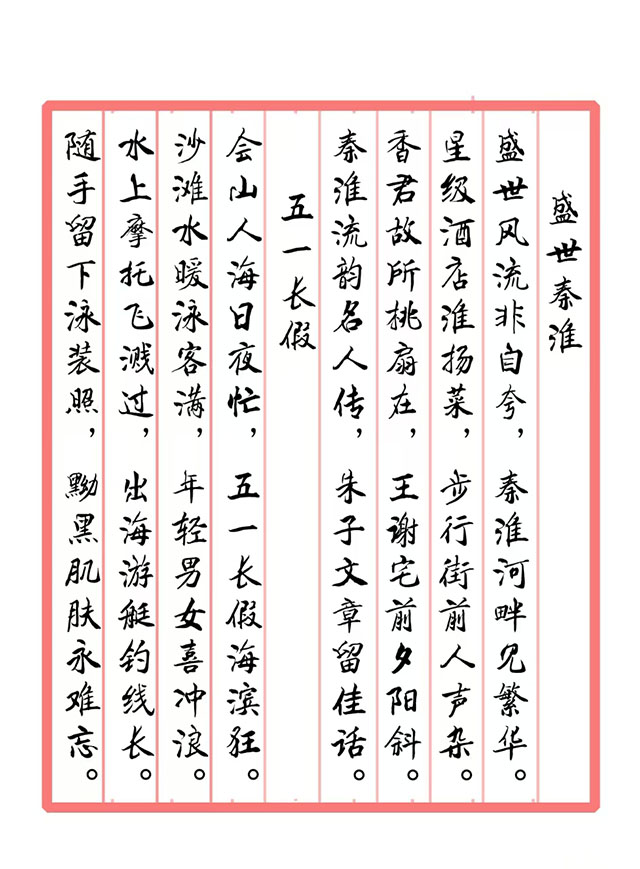 盛世秦淮
盛世风流非自夸，秦淮河畔见繁华。
星级酒店淮扬菜，步行街前人声杂。
香君故所桃扇在，王谢宅前夕阳斜。
秦淮流韵名人传，朱子文章留佳话。
五一长假
会山人海日夜忙，五一长假海滨狂。
沙滩水暖泳客满，年轻男女喜冲浪。
水上摩托飞溅过，出海游艇钓线长。
随手留下泳装照，黝黑肌肤永难忘。